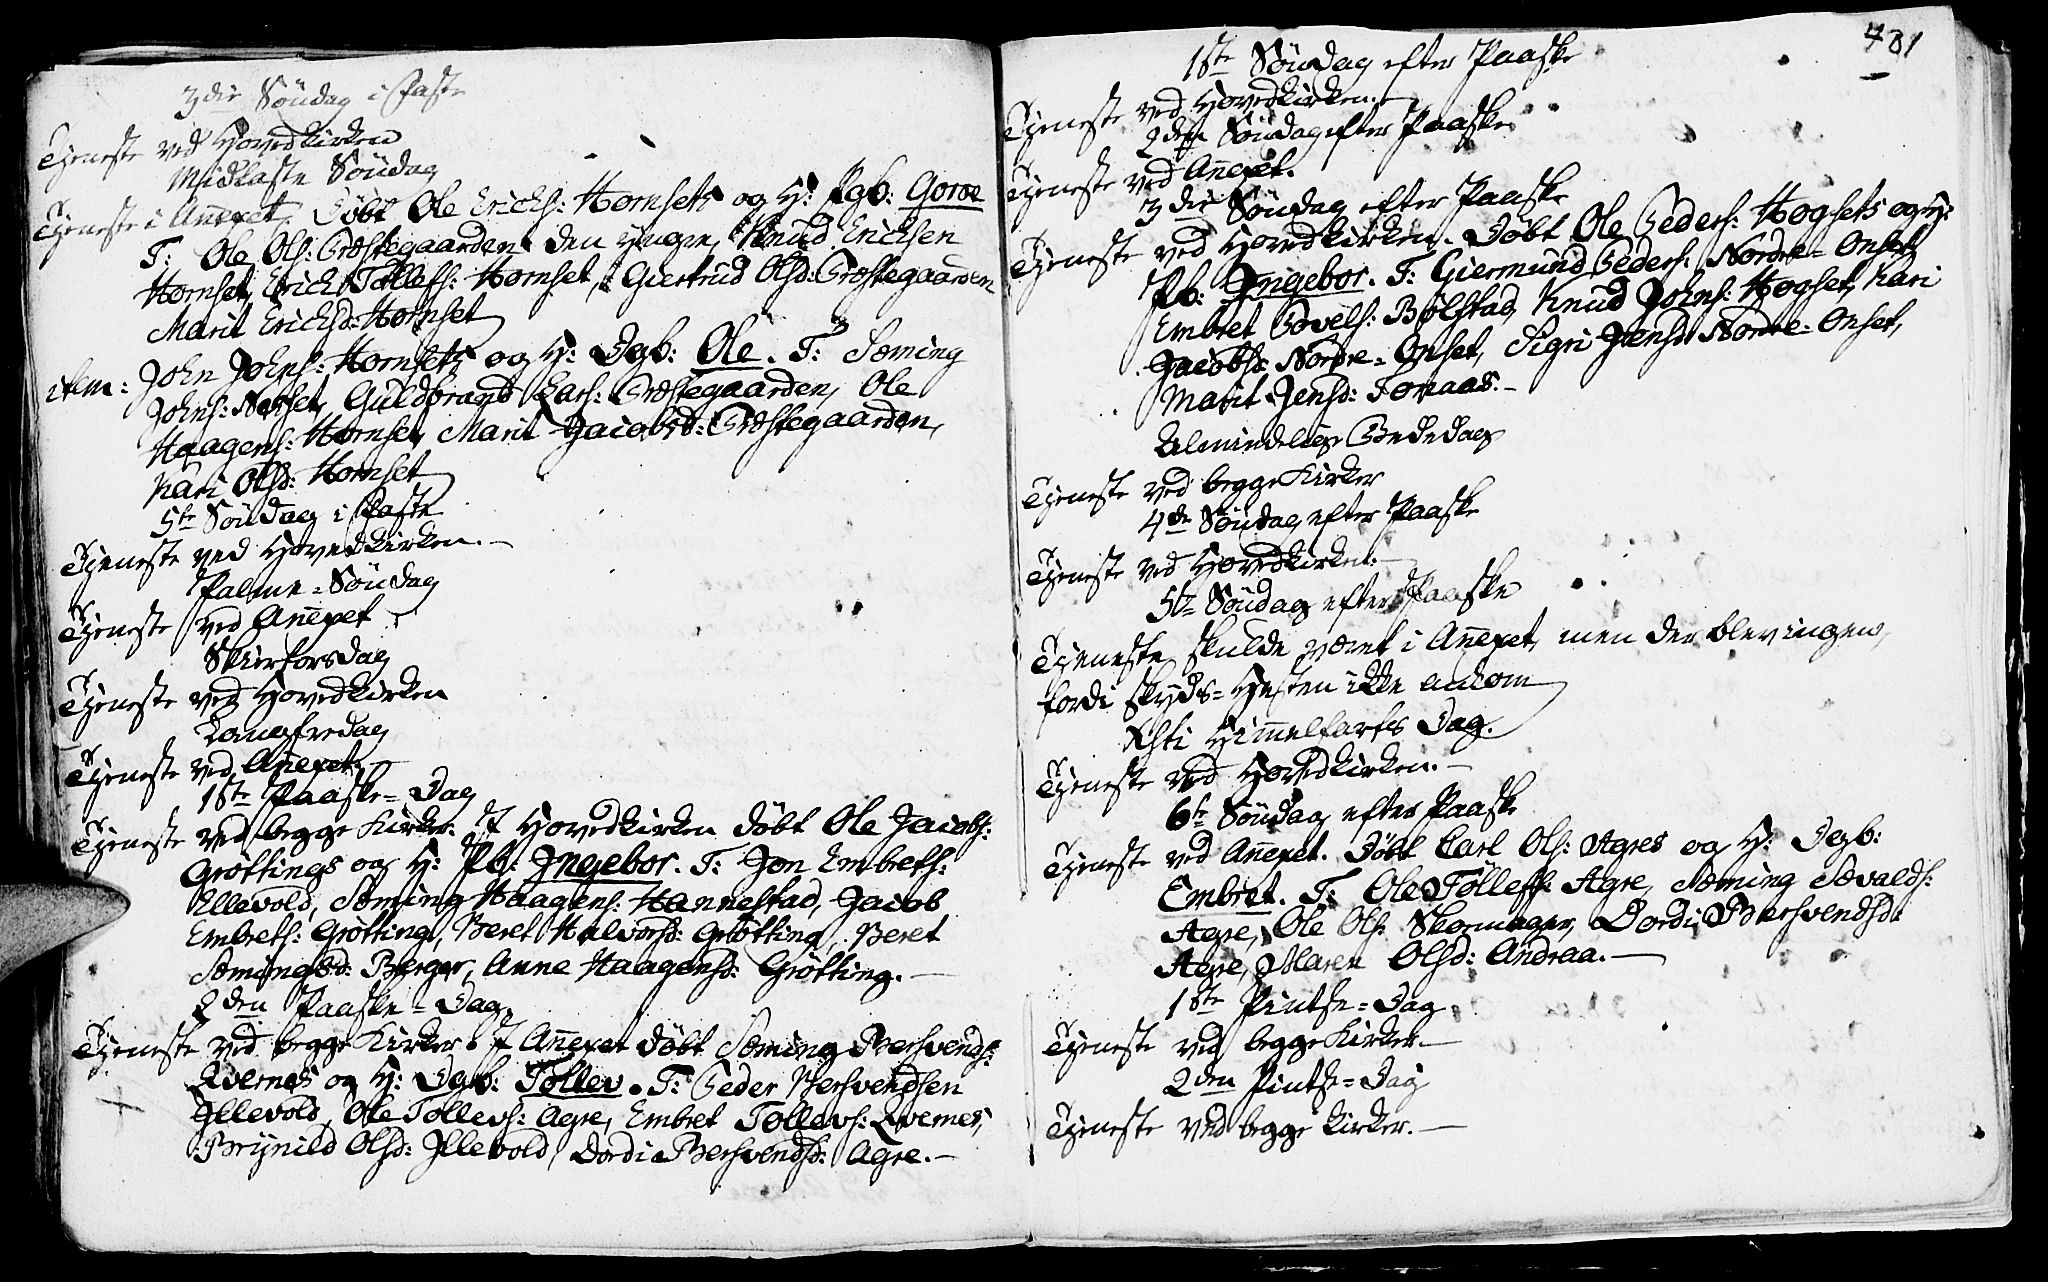 3die Söndag i Faste
Tjeneste ved Hovedkirken
Midfaste Söndag
Tjeneste i Añexet, Döbt Ole Erichs: Hornsets og H: Pgb: Goroe
T: Ole Ols: Præstegaarden den yngre, Knud Erichsen
Hornset, Erich Tollefs: Hornset, Giertrud Olsd: Præstegaarden
Marit Erichsd: Hornset
item: John Johns: Hornsets og H: Dgb: Ole. T: Sæming
Johns: Norset, Guldbrand Lars: Præstegaarden, Ole
Haagens: Hornset, Marit Jacobsd: Præstegaarden,
Kari Olsd: Hornset
5te Söndag i Faste
Tjeneste ved Hovedkirken. —
Palme=Söndag
Tjeneste ved Añexet
Skiertorsdag
Tjeneste ved Hovedkirken
Langfredag
Tjeneste ved Añexet. —
1ste Paaske=Dag
Tjeneste ved begge Kirker. I Hovedkirken döbt Ole Jacobs:
Gröttings og H: Pb: Ingebor. T: Jon Embrets:
Ellevold, Sæming Haagens: Hannestad, Jacob
Embrets: Grötting, Beret Halvorsd: Grötting, Beret
Sæmingsd: Berger, Anne Haagensd: Grötting. —
2den Paaske=Dag
Tjeneste ved begge Kirker. I Añexet döbt Sæming Bersvends:
Qvernes og H: Dgb: Tollev. T: Peder Bersvendsen
Illevold, Ole Tollevs: Agre, Embret Tollevs: Qvernes,
Brynild Olsd: Illevold, Dordi Bersvendsd: Agre. —
481
1ste Söndag efter Paaske
Tjeneste ved Hovedkirken. —
2den Söndag efter Paaske
Tjeneste ved Añexet.
3die Söndag efter Paaske
Tjeneste ved Hovedkirken. Döbt Ole Peders: Hogsets og H:
Pb: Ingebor. T: Giermund Peders: Nordre=Onset,
Embret Povels: Bolstad, Knud Johns: Hogset, Kari
Jacobsd: Nordre=Onset, Sigri Jensd: Nordre=Onset,
Marit Jensd: Foraas. —
Almindelige Bededag
Tjeneste ved begge Kirker
4de Söndag efter Paaske
Tjeneste ved Hovedkirken. —
5te Söndag efter Paaske
Tjeneste skulde været i Añexet, men der blev ingen,
fordi Skyds=Hesten ikke ankom
Xsti Himmelfarts Dag.
Tjeneste ved Hovedkirken. —
6te Söndag efter Paaske
Tjeneste ved Añexet. Döbt Carl Ols: Agres og H: Dgb:
Embret. T: Ole Tollefs: Agre, Sæming Sævalds:
Agre, Ole Ols: Skomager, Dordi Bersvendsd:
Agre, Maren Olsd: Andraa. —
1ste Pintse=Dag
Tjeneste ved begge Kirker. —
2den Pintse=Dag
Tjeneste ved begge Kirker. —